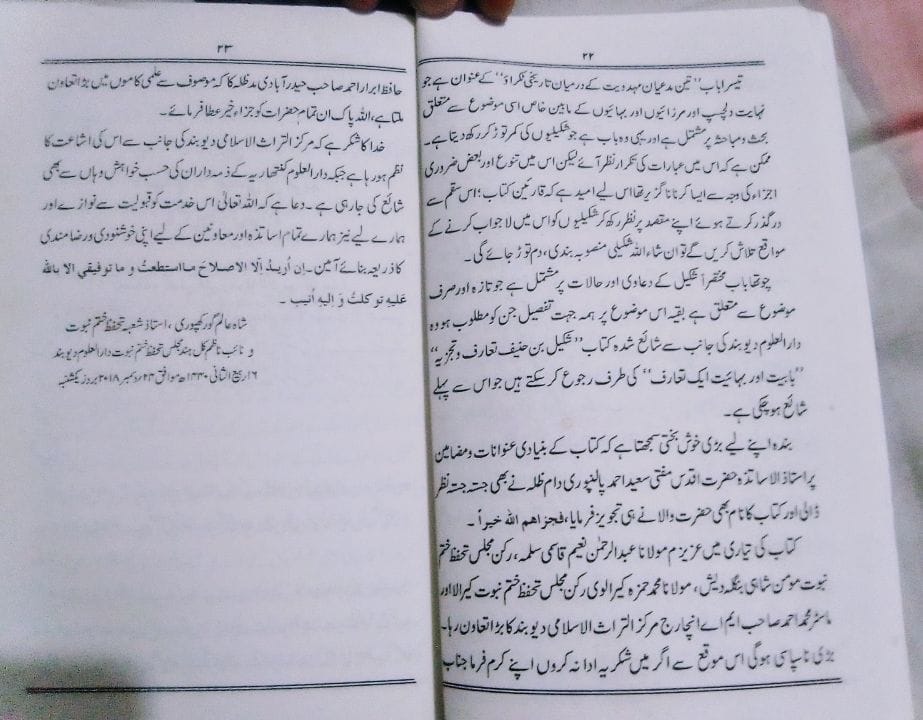 ۲۲
تیسرا باب ”تین مدعیان مہدویت کے درمیان تاریخی ٹکراؤ“ کے عنوان ہے جو
نہایت دلچسپ اور مرزائیوں اور بہائیوں کے مابین خاص اسی موضوع سے متعلق
بحث و مباحثہ پر مشتمل ہے اور یہی وہ باب ہے جو شکیلیوں کی کمر توڑ کر رکھ دیتا ہے۔
ممکن ہے کہ اس میں عبارات کی تکرار نظر آئے لیکن اس میں تنوع اور بعض ضروری
اجزاء کی وجہ سے ایسا کرنا ناگزیر تھا اس لیے امید ہے کہ قارئین کتاب؛ اس سقم سے
درگذر کرتے ہوئے اپنے مقصد پر نظر رکھ کر شکیلیوں کو اس میں لاجواب کرنے کے
مواقع تلاش کریں گے تو ان شاء اللہ شکیلی منصوبہ بندی، دم توڑ جائے گی۔
چوتھا باب مختصراً شکیل کے دعاوی اور حالات پر مشتمل ہے جو تازہ اور صرف
موضوع سے متعلق ہے بقیہ اس موضوع پر ہمہ جہت تفصیل جن کو مطلوب ہو وہ
دارالعلوم دیوبند کی جانب سے شائع شدہ کتاب ”شکیل بن حنیف تعارف و تجزیہ“
”بابیت اور بہائیت ایک تعارف“ کی طرف رجوع کر سکتے ہیں جو اس سے پہلے
شائع ہو چکی ہے۔
بندہ اپنے لیے بڑی خوش بختی سمجھتا ہے کہ کتاب کے بنیادی عنوانات و مضامین
پر استاذ الاساتذہ حضرت اقدس مفتی سعید احمد پالنپوری دام ظلہ نے بھی جستہ جستہ نظر
ڈالی اور کتاب کا نام بھی حضرت والا نے ہی تجویز فرمایا، فجزاهم الله خيراً۔
کتاب کی تیاری میں عزیزم مولانا عبدالرحمٰن نعیم قاسمی سلمہ، رکن مجلس تحفظ ختم
نبوت مومن شاہی بنگلہ دیش، مولانا محمد حمزہ کیرالوی رکن مجلس تحفظ ختم نبوت کیرالا اور
ماسٹر محمد احمد صاحب ایم اے انچارج مرکز التراث الاسلامی دیوبند کا بڑا تعاون رہا۔
بڑی ناسپاسی ہوگی اس موقع سے اگر میں شکریہ ادا نہ کروں اپنے کرم فرما جناب
۲۳
حافظ ابرار احمد صاحب حیدرآبادی مدظلہ کا کہ موصوف سے علمی کاموں میں بڑا تعاون
ملتا ہے، اللہ پاک ان تمام حضرات کو جزاء خیر عطا فرمائے۔
خدا کا شکر ہے کہ مرکز التراث الاسلامی دیوبند کی جانب سے اس کی اشاعت کا
نظم ہو رہا ہے جبکہ دارالعلوم کنتھاریہ کے ذمہ داران کی حسب خواہش وہاں سے بھی
شائع کی جا رہی ہے۔ دعا ہے کہ اللہ تعالیٰ اس خدمت کو قبولیت سے نوازے اور
ہمارے لیے نیز ہمارے تمام اساتذہ اور معاونین کے لیے اپنی خوشنودی و رضامندی
کا ذریعہ بنائے آمین۔ إن أريد إلا الإصلاح ما استطعت و ما توفيقي الا بالله
عليه توكلت و إليه أنيب۔
شاہ عالم گورکھپوری، استاذ شعبہ تحفظ ختم نبوت
و نائب ناظم کل ہند مجلس تحفظ ختم نبوت دارالعلوم دیوبند
۱۶ ربیع الثانی ۱۴۴۰ھ موافق ۲۴ دسمبر ۲۰۱۸ بروز یکشنبہ